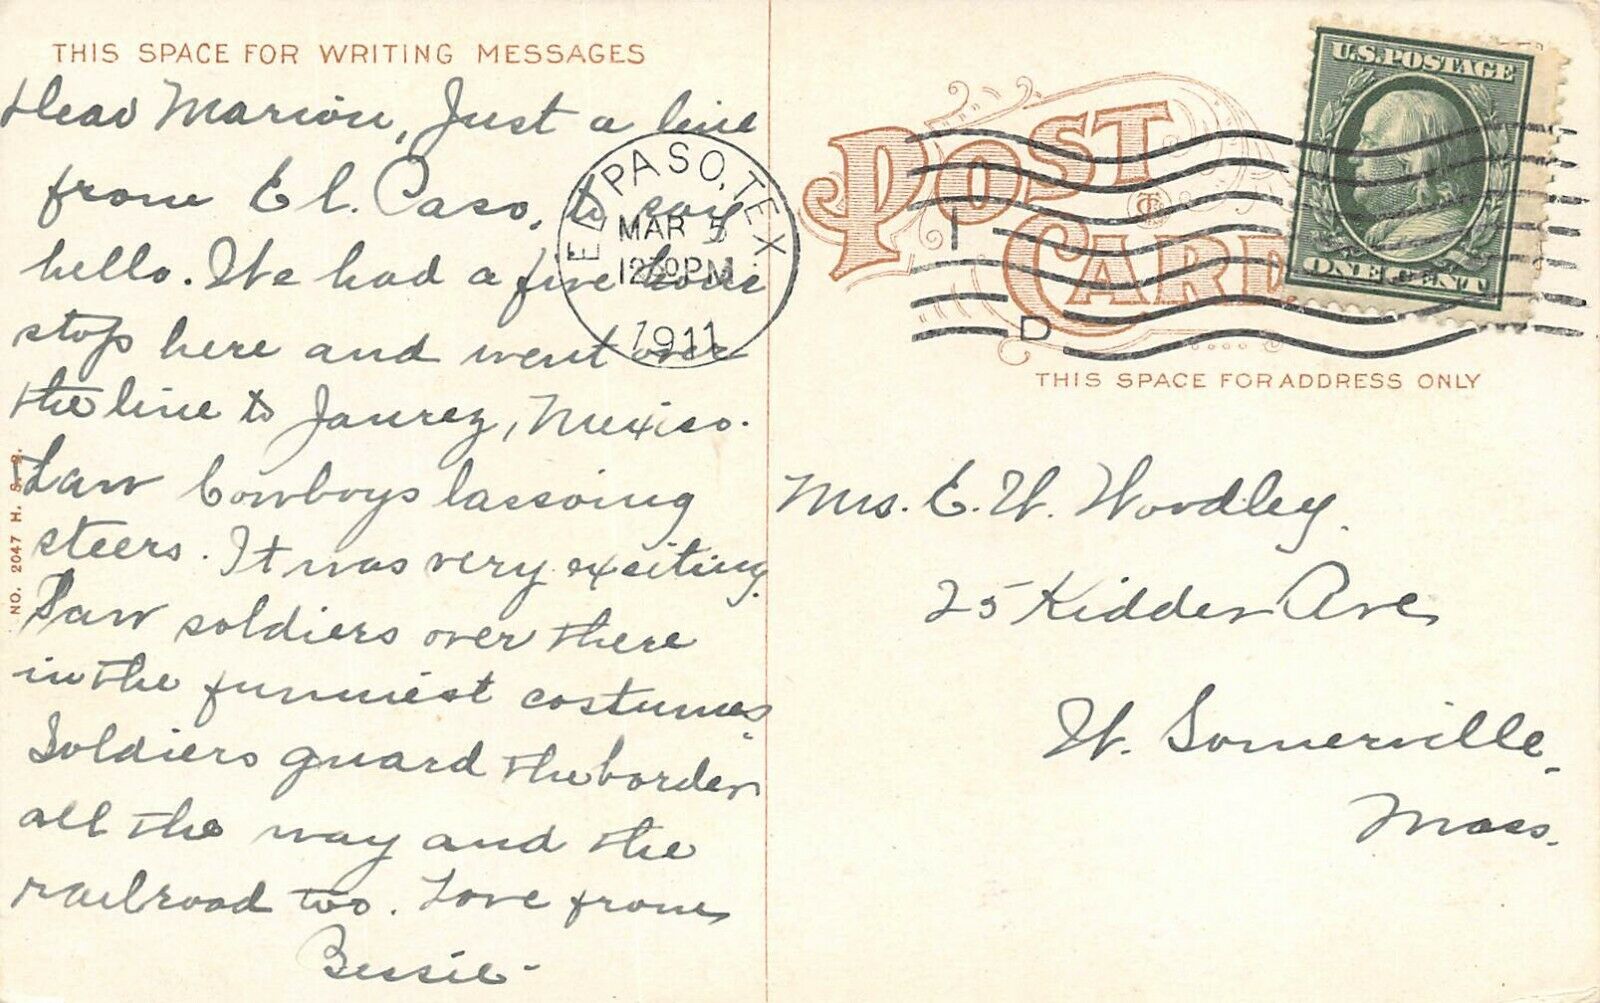 THIS SPACE FOR WRITING MESSAGES
Dear Marion, Just a line
from El. Paso, to say
hello. We had a five hour
stop here and went over
the line to Jaurez, Mexico.
Saw Cowboys lassoing
steers. It was very exciting.
Saw soldiers over there
in the funniest costumes
Soldiers guard the border
all the way and the
railroad too. Love from
Bessie-
NO. 2047 H. S. B.
EL PASO, TEX
MAR 5
1230PM
1911
POST
CARD
1
D
U.S. POSTAGE
ONE CENT
THIS SPACE FOR ADDRESS ONLY
Mrs. E. W. Woodley.
25 Kidder Ave
W. Somerville,
Mass.